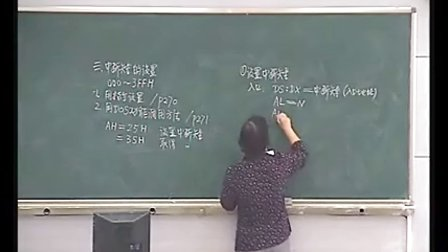 三. 中断矢量的设置
000~3FFH
1. 用指令设置 /p270
2. 用DOS功能调用方法 /p271
AH=25H 设置中断矢量
=35H 取得 〃
①设置中断矢量
入口 DS:DX=中断矢量(入口地址)
AL=N
A